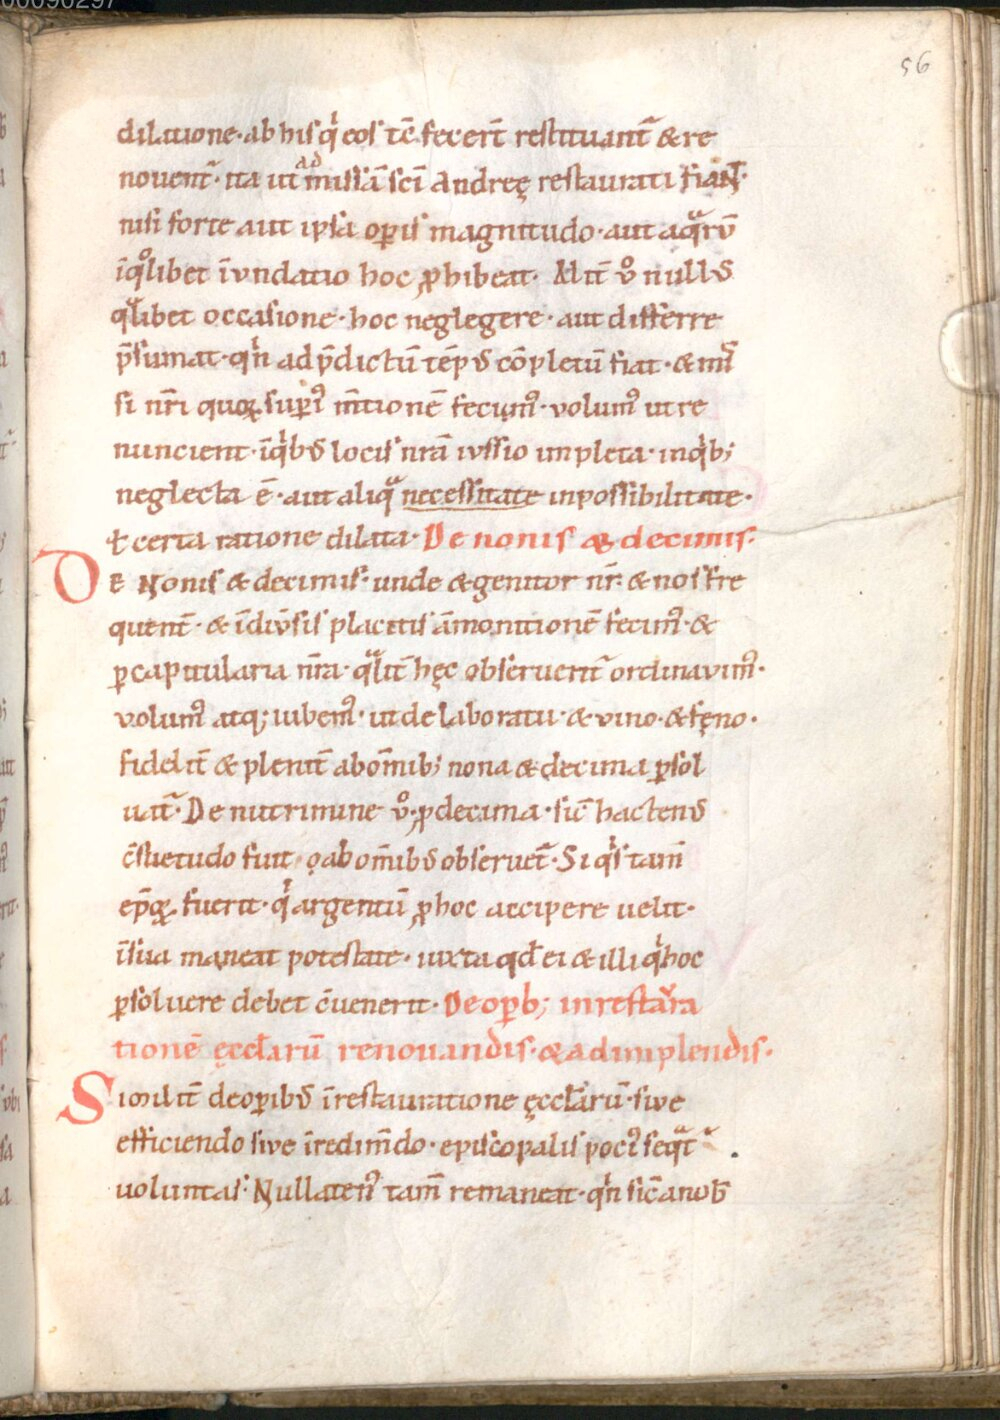 56
dilatione· ab his q̇ eos tc̄ fecer̄t restituant᷑ & re
noveent᷑· ita ut ad missā sc̄i Andreę restaurati fiant·
nisi forte aut ipsa oꝑis magnitudo· aut aquarū
īqͦlibet īvndatio hoc ꝓhibeat· Alit̄ vͦ nullꝰ
qͣlibet occasione· hoc neglegere· aut differre
p̄sumat· qͥn ad p̄dictū tēpꝰ cōpletū fiat· & mis
si nr̄i quoꝝ suꝑiꝰ m̄tionē fecimꝰ· volumꝰ ut re
nuncient· īqͥbꝰ locis nr̄a iussio impleta· inqͥb;
neglecta ē· aut aliqͣ necessitate inpossibilitate·
ł certa ratione dilata· De nonis & decimis·
DE Nonis & decimis· unde & genitor nr̄· & nos fre
quent̄· & īdiv̄sis placitis āmonitionē fecimꝰ· &
ꝑcapitularia nr̄a· qͣlit̄ hęc observent᷑ ordinavimꝰ·
volumꝰ atq; iubemꝰ· ut de laboratu· & vino· & fęno·
fidelit̄ & plenit̄ abom̄ib; nona & decima ꝑsol
uat᷑· De nutrimine vͦ· ꝓdecima· sic̄ hactenꝰ
c̄suetudo fuit· abom̄ibꝰ observet᷑· Si qͥs tam̄
ep̄oꝝ fuerit· qͥ argentū ꝓhoc accipere uelit·
īsua maneat potestate· iuxta qd̄ ei & illi qͥ hoc
ꝑsoluere debet c̄venerit· De oꝑib; in restaura
tionē ęccl̄arū renouandis· & adimplendis·
Similit̄ deoꝑibꝰ īrestauratione ęccl̄iarū· sive
efficiendo sive īredim̄do· episcopalis pociꝰ seqͣt᷑
uoluntas· Nullatenꝰ tam̄ remaneat· qͥn sic̄ a nob̄